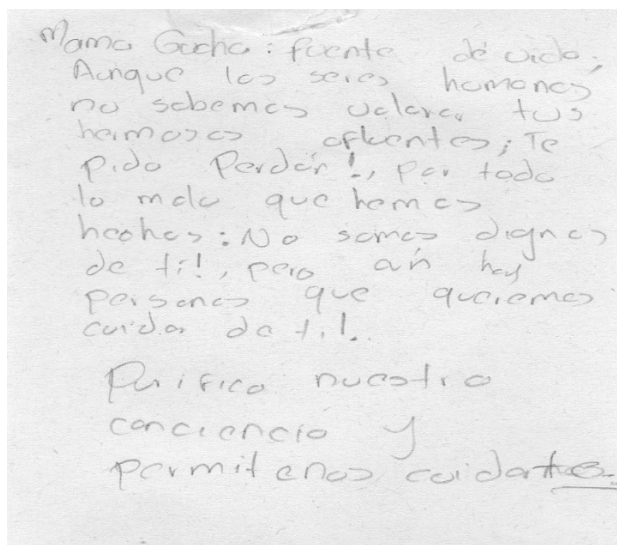 Mama Gacha: fuente de vida;
Aunque los seres humanos
no sabemos valorar tus
hermosos afluentes; Te
pido Perdón!, por todo
lo malo que hemos
hechos: No somos dignos
de ti!, pero aún hay
personas que queremos
cuidar de ti!.
Purifica nuestra
conciencia y
permitenos cuidarte.